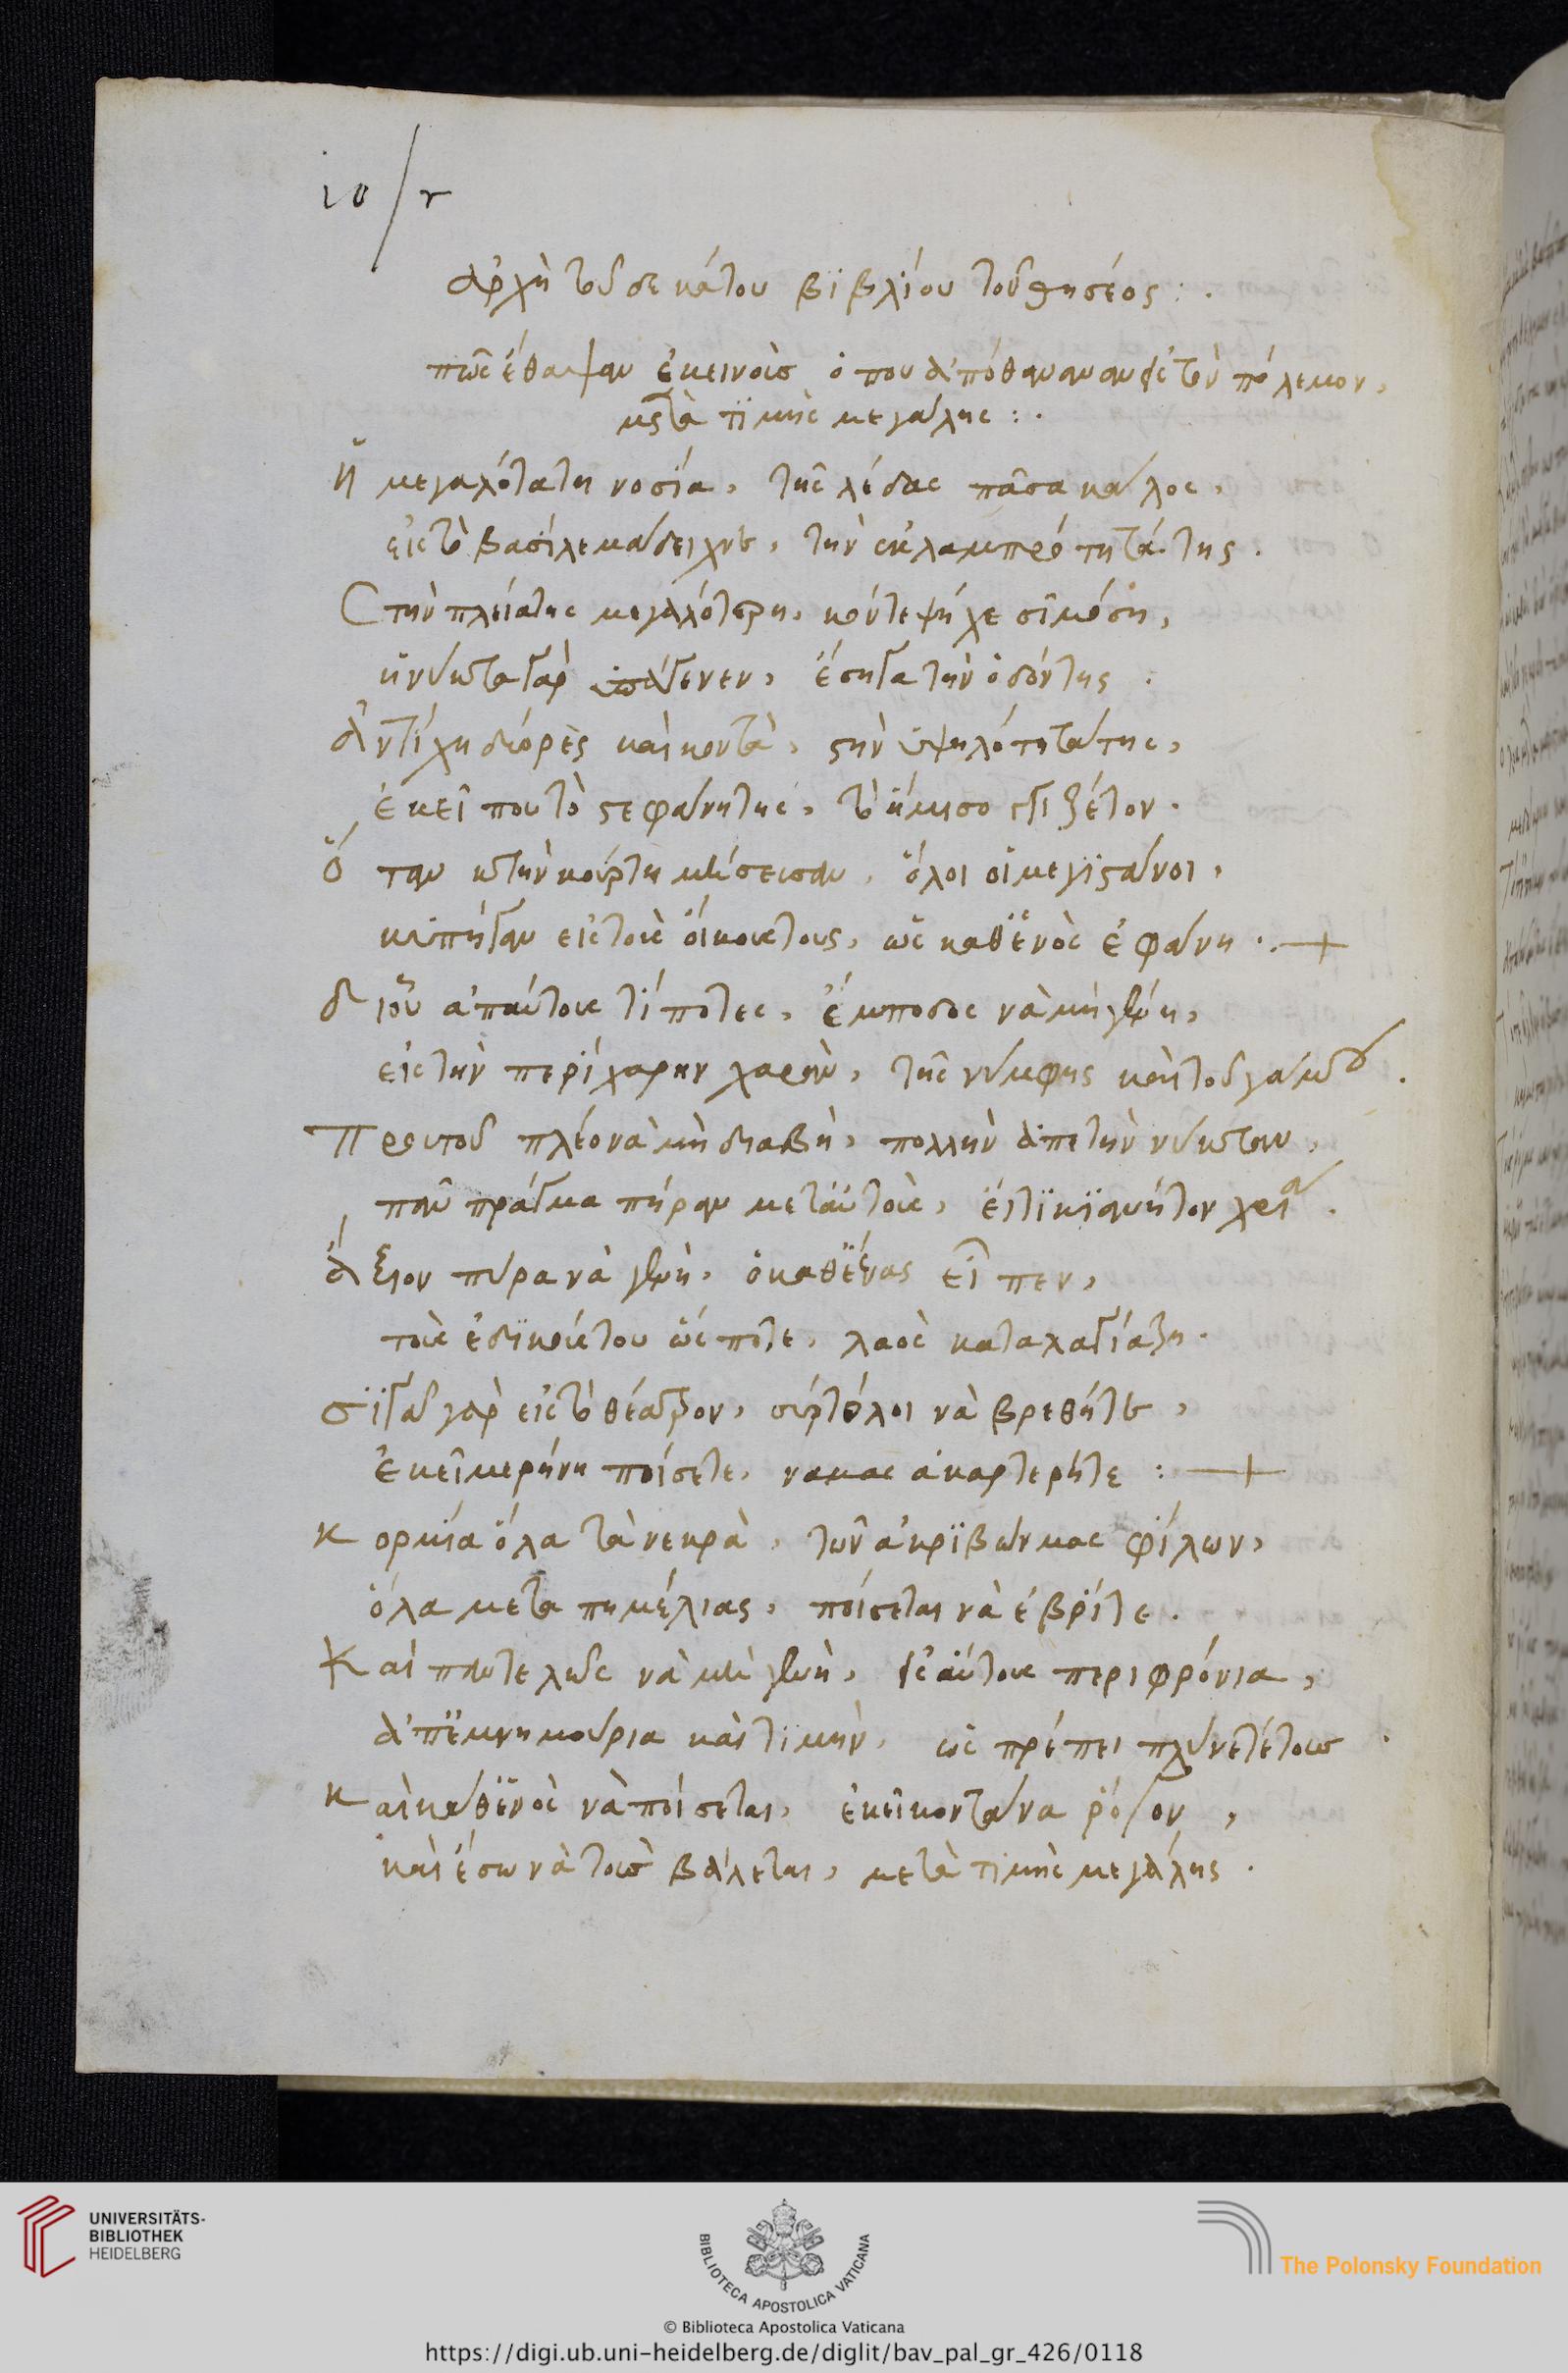 10/r
ἀρχὴ τοῦ δεκάτου βϊβλίου τοῦ θησέος :.
πῶς ἔθαψαν ἐκεινοὺσ ὁπου ἀπόθαναν σὲ τὸν πόλεμον,
μετὰ τϊμῆς μεγάλης :.
Η μεγαλότατη νοσία, τῆς λέδας πᾶσα κάλος,
εἰς τὸ βασίλεμα δειχνε, τὴν ἐκλαμπρότητά της.
Στὴν πλείατης μεγαλότερη, κοντεψήχε σϊμόση,
ἡ νύκτα γὰρ ὑπάγενεν, ἔσηγα τὴν ὁδόν της.
Ἀντίχη δυόρὲς καὶ κοντὰ, στὴν ὑψηλότητά της,
ἐκεῖ που τὸ στεφάνη της, τὸ ἥμισο ξέτον.
Ὅταν στὴν κούρτη μίσεισαν, ὅλοι οἱ μεγϊστάνοι,
κυπήγαν εἰς τοὺς οἴκους τους, ὡς καθἕνὸς ἐφάνη .—+
διοῦ ἀπαύτους τίποτες, ἔμποδος νὰ μὴ γένη,
εἰς τὴν περίχαρην χαρὰν, τῆς νύμφης καὶ τοῦ γάμου.
Πρϊτοῦ πλέο νὰ μὴ διαβῆ, πολλὴν ἀπε τὴν νύκταν,
πᾶν πράγμα πήραν μεταύτους, ἔτϊκϊανήτον χρία.
Ἄξιον τώρα νὰ γένη, ὁκαθἕνας εἶπεν,
τοὺς ἐδϊκούς του ὥς ποτε, λαὸς καταλαγίαζη.
σϊγᾶ γὰρ εἰς τὸ θέατρον, σύρτε ὅλοι νὰ βρεθῆτε,
ἐκεῖ μερήνη ποίσετε, να μας ἀκαρτερῆτε : —+
κορμία ὅλα τὰ νεκρὰ, τῶν ἀκρϊβῶν μας φίλων,
ὅλα μετα πημέλιας, ποίσεται νὰ ἐβρῖτε.
Καὶ παντελῶς νὰ μὴ γένη, σὲ αὔτους περιφρόνια,
ἀπἕμνημούρια καὶ τϊμὴν, ὡς πρέπει πλύνετέτους.
καὶ καθἕνὸς νὰ ποίσεται, ἐκεῖ κοντὰ να ρόγον,
καὶ ἔσω νὰ τοὺσ βάλεται, μετὰ τϊμῆς μεγάλης.
UNIVERSITÄTS-
BIBLIOTHEK
HEIDELBERG
BIBLIOTECA APOSTOLICA VATICANA
The Polonsky Foundation
© Biblioteca Apostolica Vaticana
https://digi.ub.uni-heidelberg.de/diglit/bav_pal_gr_426/0118